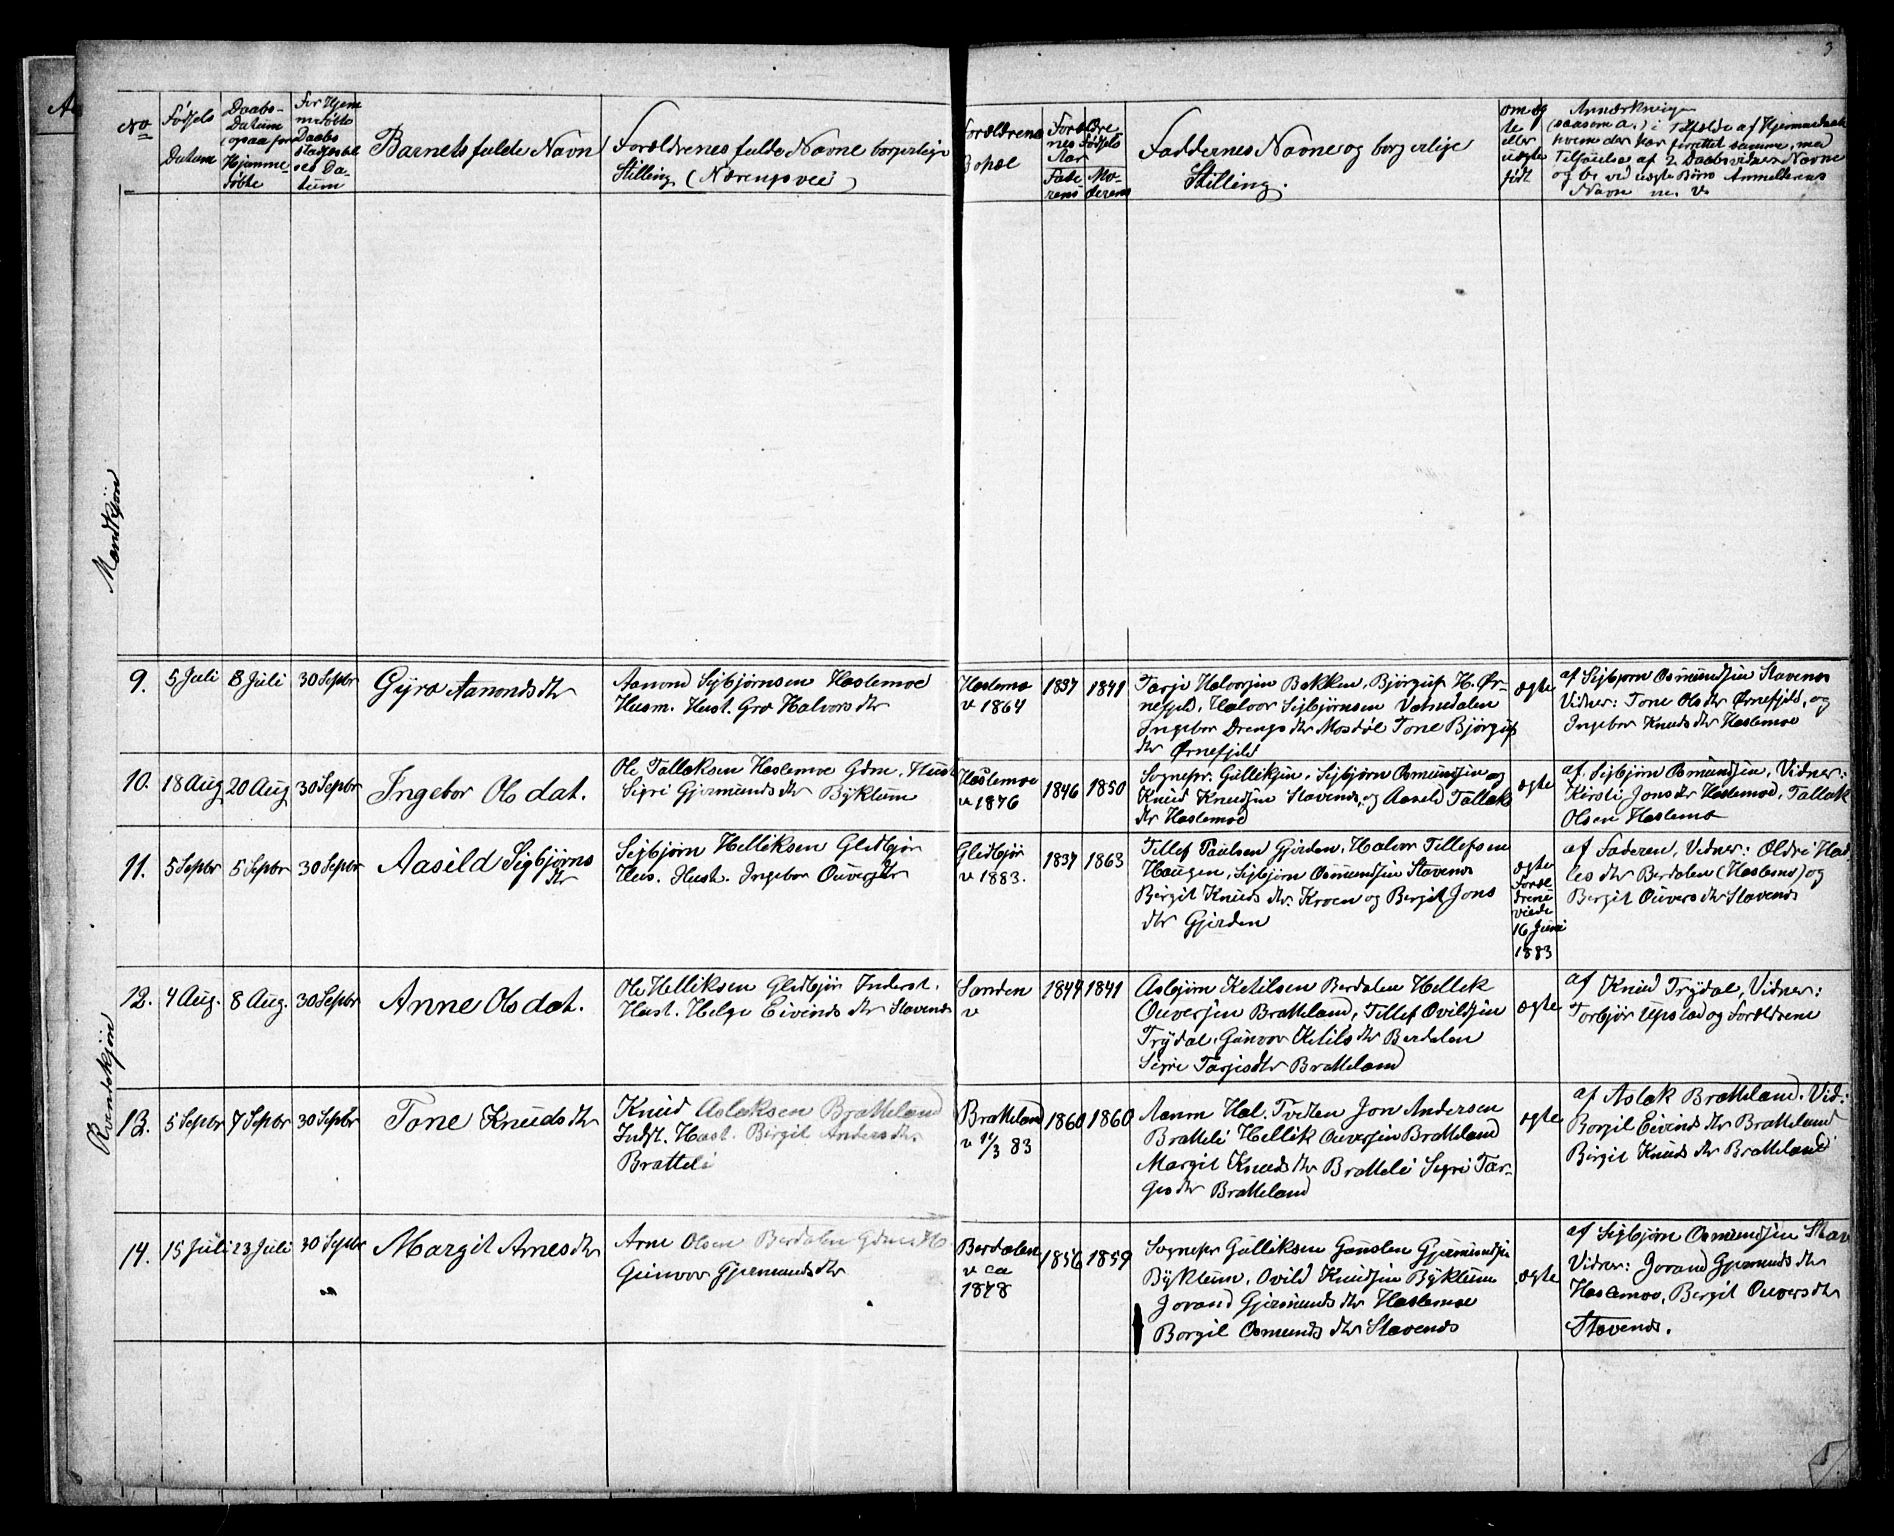 3
No
Fødsels
Datum
Daabs-
Datum
(ogsaa for
Hjemme-
døbte
For Hjem
medøbte
Daabs
stadfæstel
ses Da-
tum
Barnets fulde Navn
Forældrenes fulde Navne borgerlige
Stilling (Næringsvei)
Forældrenes
Bopæl
Forældre
nes Fødsels
Aar
Fade
rens
Mo-
derens
Faddernes Navne og borgerlige
Stilling.
om æg
te
eller
uægte
født
Anmærkninger
(saasom a.) i Tilfælde af Hjemmedaab
hvem der har forrettet samme, med
Tilføielse af 2 Daabsvidners Navne
og b. ved uægte Børn Anmelderens
Navn m. v
Mandkjøn
Kvindekjön
9.
5 Juli
8 Juli
30 Septbr
Gyro Aanondsdtr
Aanond Sigbjørnsen Haslemoe
Husm. Hust. Gro Halvorsdtr
Haslemo
v 1864
1837
1841
Tarje Halvorsen Bakken, Bjørguf H. Ør-
nefjeld, Halvor Sigbjørnsen Vatnedalen
Ingebor Drengsdtr Mosdöl Tone Bjørguf
dtr Ørnefjeld
ægte
af Sigbjørn Osmundsen Stavenes
Vidner: Tone Olsdtr Ørnefjeld, og
Ingebor Knudsdtr Haslemoe
10.
18 Aug
20 Aug
30 Septbr
Ingebor Olsdat.
Ole Tallaksen Haslemoe Gdm. Hust
Sigri Gjermundsdtr Byklum
Haslemoe
v 1876
1846
1850
Sognepr. Gulliksen, Sigbjørn Osmundsen og
Knud Knudsen Stavenes, og Aasild Tallaks
dtr Haslemoe
ægte
af Sigbjørn Osmundsen, Vidner:
Kirsti Jonsdtr Haslemoe, Tallak
Olsen Haslemo
11.
5 Septbr
5 Septbr
30 Septbr
Aasild Sigbjørns
dtr
Sigbjørn Helliksen Gledbjör
Hus. Hust. Ingebor Ouversdtr
Gledbjör
v 1883.
1837
1863
Tillef Paulsen Gjerden, Halvor Tillefsen
Haugen, Sigbjørn Osmundsen Stavenes
Birgit Knudsdtr Kroen og Bergit Jons
dtr Gjerden
ægte
Foræl
drene
viede
16 Juni
1883
af Faderen, Vidner: Oldri Had
lesdtr Berdalen (Haslemo) og
Bergit Ouversdtr Stavenes
12.
4 Aug.
8 Aug.
30 Septbr
Anne Olsdat.
Ole Helliksen Gledbjör Inderst.
Hust. Helge Eivindsdtr Stavenes
Sanden
v
1844
1841
Asbjørn Ketilsen Berdalen Hellek
Ouversen Bratteland, Tillef Ovildsen
Trydal, Gunvor Ketilsdtr Berdalen
Sigri Targisdtr Bratteland
ægte
af Knud Trydal, Vidner:
Torbjör Upstad og Forældrene
13.
5 Septbr
7 Septbr
30 Septbr
Tone Knudsdtr
Knud Aslaksen Bratteland
Indst. Hust. Birgit Andersdtr
Bratteli
Bratteland
v 11/3 83
1860
1860
Aanm Hal. Tveiten Jon Andersen
Bratteli Hellik Ouversen Bratteland
Margit Knudsdtr Bratteli Sigri Tar-
gisdtr Bratteland
ægte
af Aslak Bratteland. Vid:
Borgil Eivindsdtr Bratteland
Birgit Knudsdtr Bratteland
14.
15 Juli
23 Juli
30 Septbr
Margit Arnesdtr
Arne Olsen Berdalen Gdm
Gunvor Gjermundsdtr
Berdalen
v ca
1878
1856
1859
Sognepr Gulliksen Gunsten Gjermundsen
Byklum, Ovild Knudsen Byklum
Jorand Gjermundsdtr Haslemoe
Borgil Osmundsdtr Stavenes
ægte
af Sigbjørn Osmundsen Stav
Vidner: Jorand Gjermundsdtr
Haslemoe, Bergit Ouversdtr
Stavenes.